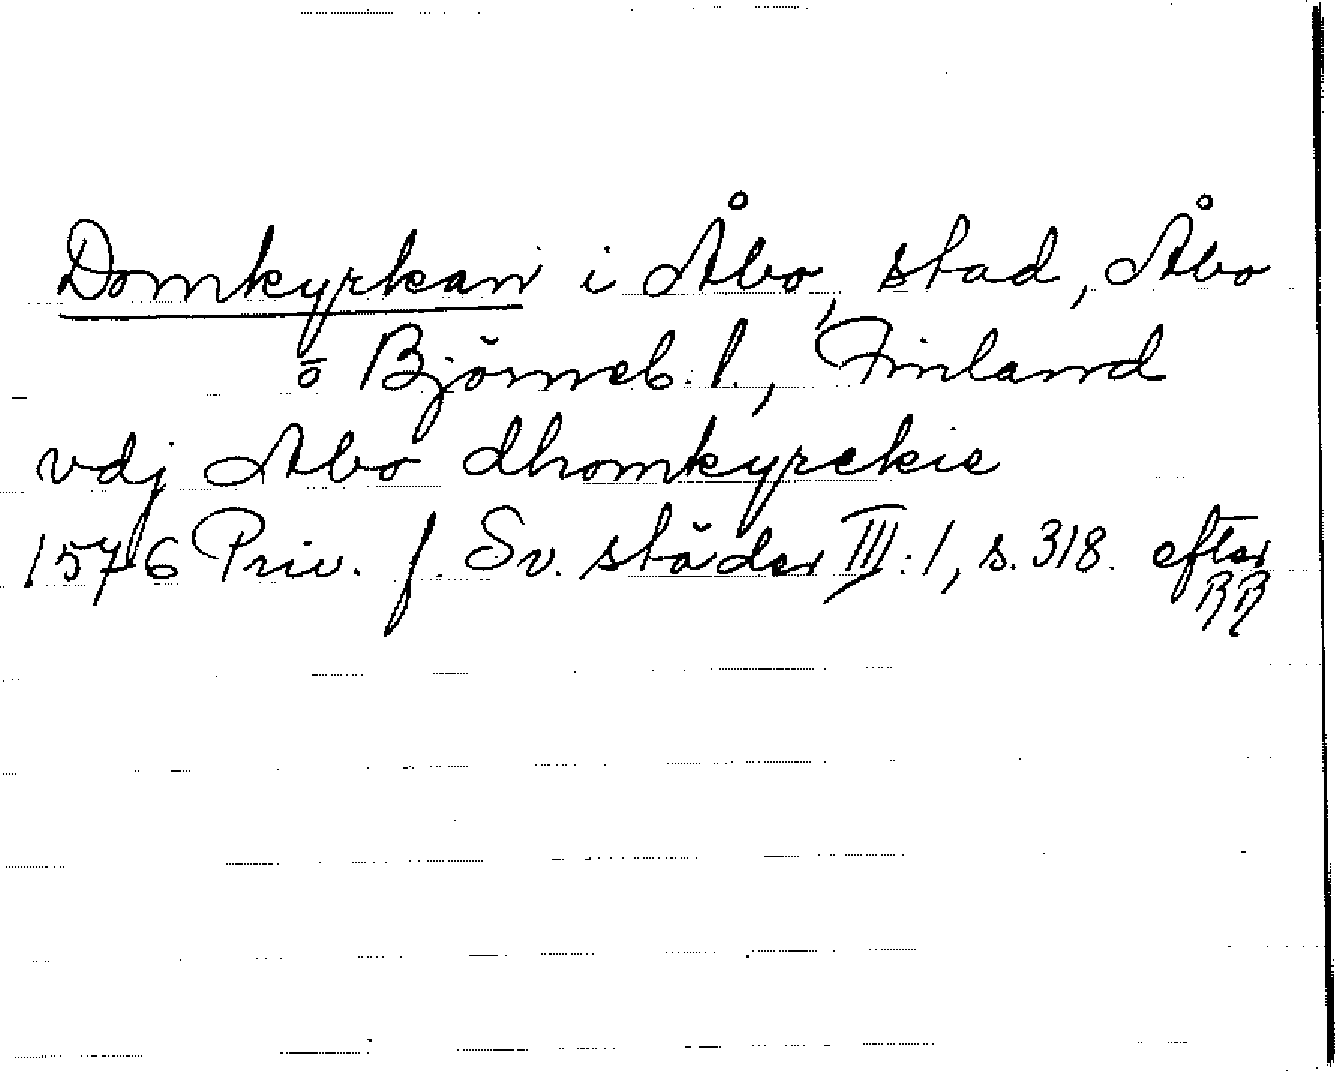 Domkyrkan i Åbo, stad, Åbo
o Björneb. l., Finland
vdj Abo dhomkyrckie
1576 Priv. f. Sv. städer III:1, s. 318. efter
RR